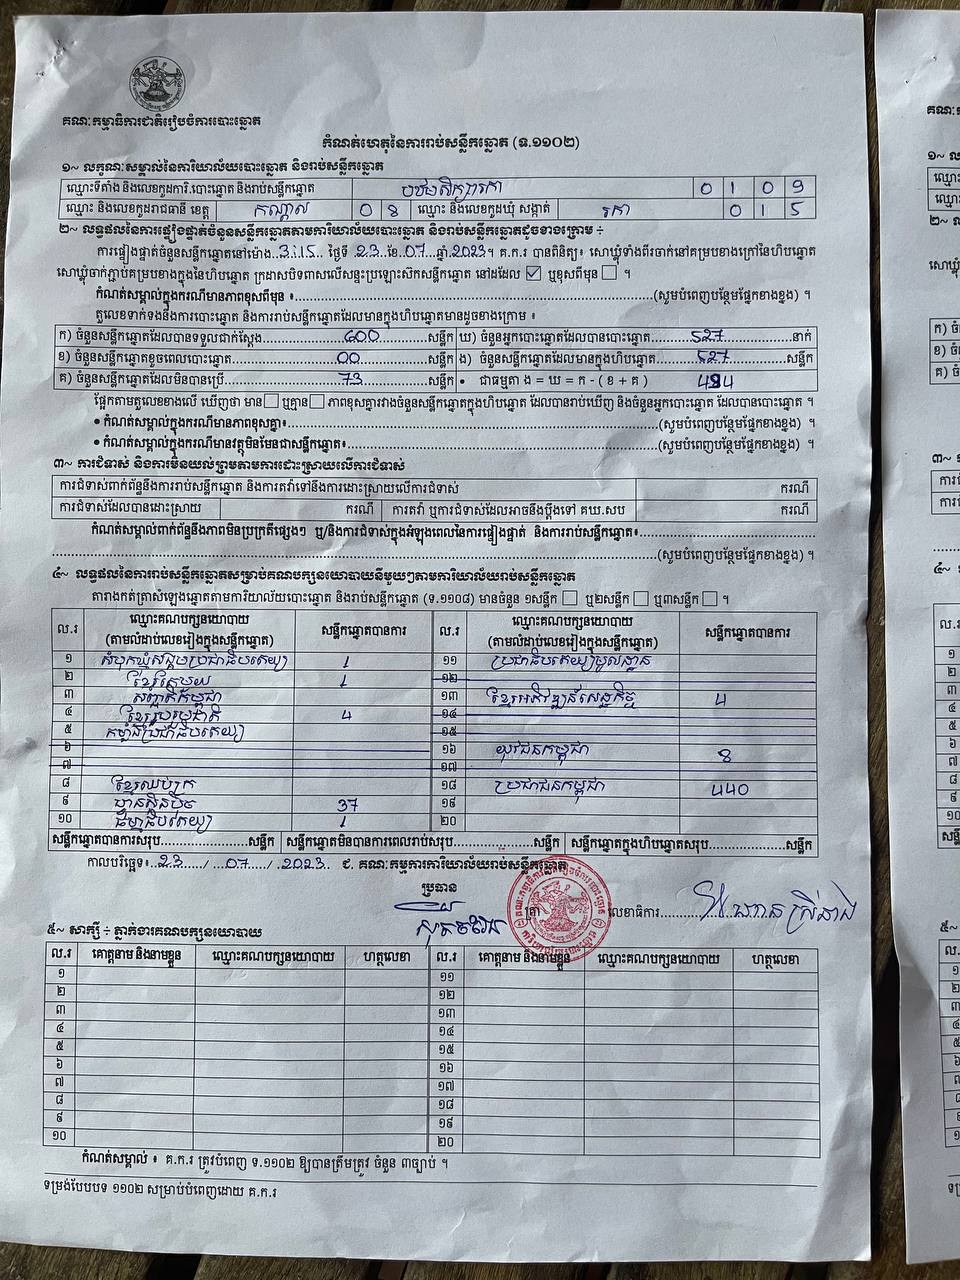 គណៈកម្មាធិការជាតិរៀបចំការបោះឆ្នោត
កំណត់ហេតុនៃការរាប់សន្លឹកឆ្នោត (ទ.១១០២)
១~ លក្ខណៈសម្គាល់នៃការិយាល័យបោះឆ្នោត និងរាប់សន្លឹកឆ្នោត
ឈ្មោះទីតាំង និងលេខកូដការិ.បោះឆ្នោត និងរាប់សន្លឹកឆ្នោត 0 1 0 9
ឈ្មោះ និងលេខកូដរាជធានី ខេត្ត កណ្តាល 0 8 ឈ្មោះ និងលេខកូដឃុំ សង្កាត់ រកា 0 1 5
២~ លទ្ធផលនៃការផ្ទៀងផ្ទាត់ចំនួនសន្លឹកឆ្នោតតាមការិយាល័យបោះឆ្នោត និងរាប់សន្លឹកឆ្នោតដូចខាងក្រោម ÷
ការផ្ទៀងផ្ទាត់ចំនួនសន្លឹកឆ្នោតនៅម៉ោង..3:15.. ថ្ងៃទី..23..ខែ..07..ឆ្នាំ.2023។ គ.ក.រ បានពិនិត្យ៖ សោឃ្លុំទាំងពីរចាក់នៅគម្របខាងក្រៅនៃហិបឆ្នោត
សោឃ្លុំចាក់ភ្ជាប់គម្របខាងក្នុងនៃហិបឆ្នោត ក្រដាសបិទពាសលើសន្ទះប្រឡោះស៊កសន្លឹកឆ្នោត នៅដដែល ☑ ឬខុសពីមុន ☐ ។
កំណត់សម្គាល់ក្នុងករណីមានភាពខុសពីមុន ៖..........(សូមបំពេញបន្ថែមផ្នែកខាងខ្នង) ។
តួលេខទាក់ទងនឹងការបោះឆ្នោត និងការរាប់សន្លឹកឆ្នោតដែលមានក្នុងហិបឆ្នោតមានដូចខាងក្រោម ៖
ក) ចំនួនសន្លឹកឆ្នោតដែលបានទទួលជាក់ស្តែង 600 សន្លឹក ឃ) ចំនួនអ្នកបោះឆ្នោតដែលបានបោះឆ្នោត 527 នាក់
ខ) ចំនួនសន្លឹកឆ្នោតខូចពេលបោះឆ្នោត 00 សន្លឹក ង) ចំនួនសន្លឹកឆ្នោតដែលមានក្នុងហិបឆ្នោត 527 សន្លឹក
គ) ចំនួនសន្លឹកឆ្នោតដែលមិនបានប្រើ 73 សន្លឹក • ជាធម្មតា ង = ឃ = ក - ( ខ + គ )
ផ្អែកតាមតួលេខខាងលើ ឃើញថា មាន ☐ ឬគ្មាន ☐ ភាពខុសគ្នារវាងចំនួនសន្លឹកឆ្នោតក្នុងហិបឆ្នោត ដែលបានរាប់ឃើញ និងចំនួនអ្នកបោះឆ្នោត ដែលបានបោះឆ្នោត ។
• កំណត់សម្គាល់ក្នុងករណីមានភាពខុសគ្នា៖..........(សូមបំពេញបន្ថែមផ្នែកខាងខ្នង) ។
• កំណត់សម្គាល់ក្នុងករណីមានវត្ថុមិនមែនជាសន្លឹកឆ្នោត៖..........(សូមបំពេញបន្ថែមផ្នែកខាងខ្នង) ។
៣~ ការជំទាស់ និងការមិនយល់ព្រមតាមការដោះស្រាយលើការជំទាស់
ការជំទាស់ពាក់ព័ន្ធនឹងការរាប់សន្លឹកឆ្នោត និងការតវ៉ាទៅនឹងការដោះស្រាយលើការជំទាស់ ករណី
ការជំទាស់ដែលបានដោះស្រាយ ករណី ការតវ៉ា ឬការជំទាស់ដែលអាចនឹងប្តឹងទៅ គឃ.សប ករណី
កំណត់សម្គាល់ពាក់ព័ន្ធនឹងភាពមិនប្រក្រតីផ្សេងៗ ឬ/និងការជំទាស់ក្នុងអំឡុងពេលនៃការផ្ទៀងផ្ទាត់ និងការរាប់សន្លឹកឆ្នោត៖..........
..........(សូមបំពេញបន្ថែមផ្នែកខាងខ្នង) ។
៤~ លទ្ធផលនៃការរាប់សន្លឹកឆ្នោតសម្រាប់គណបក្សនយោបាយនីមួយៗតាមការិយាល័យរាប់សន្លឹកឆ្នោត
តារាងកត់ត្រាសំឡេងឆ្នោតតាមការិយាល័យបោះឆ្នោត និងរាប់សន្លឹកឆ្នោត (ទ.១១០៨) មានចំនួន ១សន្លឹក ☐ ឬ២សន្លឹក ☐ ឬ៣សន្លឹក ☐ ។
ល.រ ឈ្មោះគណបក្សនយោបាយ (តាមលំដាប់លេខរៀងក្នុងសន្លឹកឆ្នោត) សន្លឹកឆ្នោតបានការ ល.រ ឈ្មោះគណបក្សនយោបាយ (តាមលំដាប់លេខរៀងក្នុងសន្លឹកឆ្នោត) សន្លឹកឆ្នោតបានការ
១ សំបុកឃ្មុំសង្គមប្រជាធិបតេយ្យ 1 ១១ ប្រជាធិបតេយ្យមូលដ្ឋាន
២ ខ្មែរតែមួយ 1 ១២
៣ សញ្ជាតិកម្ពុជា ១៣ ខ្មែរអភិវឌ្ឍន៍សេដ្ឋកិច្ច 4
៤ ខ្មែររួបរួមជាតិ 4 ១៤
៥ កម្លាំងប្រជាធិបតេយ្យ ១៥
៦ ១៦ យុវជនកម្ពុជា 8
៧ ១៧
៨ ខ្មែរឈប់ក្រ ១៨ ប្រជាជនកម្ពុជា 440
៩ ហ្វ៊ុនស៊ិនប៉ិច 37 ១៩
១០ ធម្មាធិបតេយ្យ 1 ២០
សន្លឹកឆ្នោតបានការសរុប..........សន្លឹក សន្លឹកឆ្នោតមិនបានការពេលរាប់សរុប..........សន្លឹក សន្លឹកឆ្នោតក្នុងហិបឆ្នោតសរុប..........សន្លឹក
កាលបរិច្ឆេទ៖..23../..07../..2023. ជ. គណៈកម្មការការិយាល័យរាប់សន្លឹកឆ្នោត
ប្រធាន
ត្រា លេខាធិការ
៥~ សាក្សី ÷ ភ្នាក់ងារគណបក្សនយោបាយ
ល.រ គោត្តនាម និងនាមខ្លួន ឈ្មោះគណបក្សនយោបាយ ហត្ថលេខា ល.រ គោត្តនាម និងនាមខ្លួន ឈ្មោះគណបក្សនយោបាយ ហត្ថលេខា
១ ១១
២ ១២
៣ ១៣
៤ ១៤
៥ ១៥
៦ ១៦
៧ ១៧
៨ ១៨
៩ ១៩
១០ ២០
កំណត់សម្គាល់ ៖ គ.ក.រ ត្រូវបំពេញ ទ.១១០២ ឱ្យបានត្រឹមត្រូវ ចំនួន ៣ច្បាប់ ។
ទម្រង់បែបបទ ១១០២ សម្រាប់បំពេញដោយ គ.ក.រ